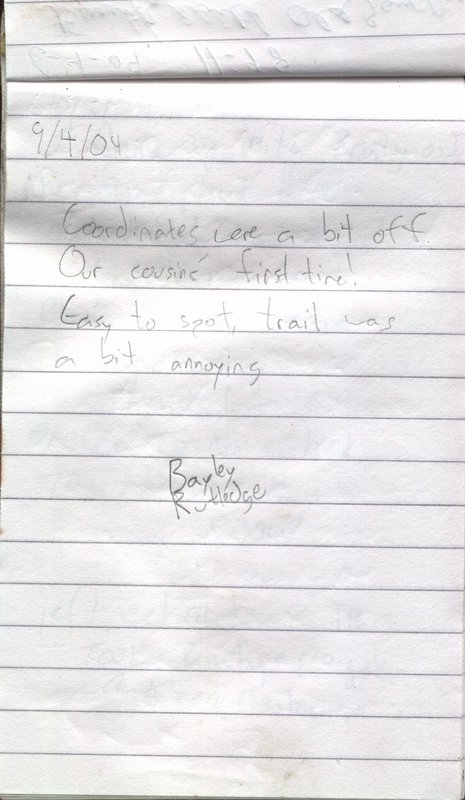 9/4/04
Coordinates were a bit off.
Our cousins' first time!
Easy to spot, trail was
a bit annoying
Bayley
Rutledge